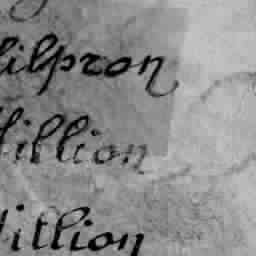 ilpron
illion
illion